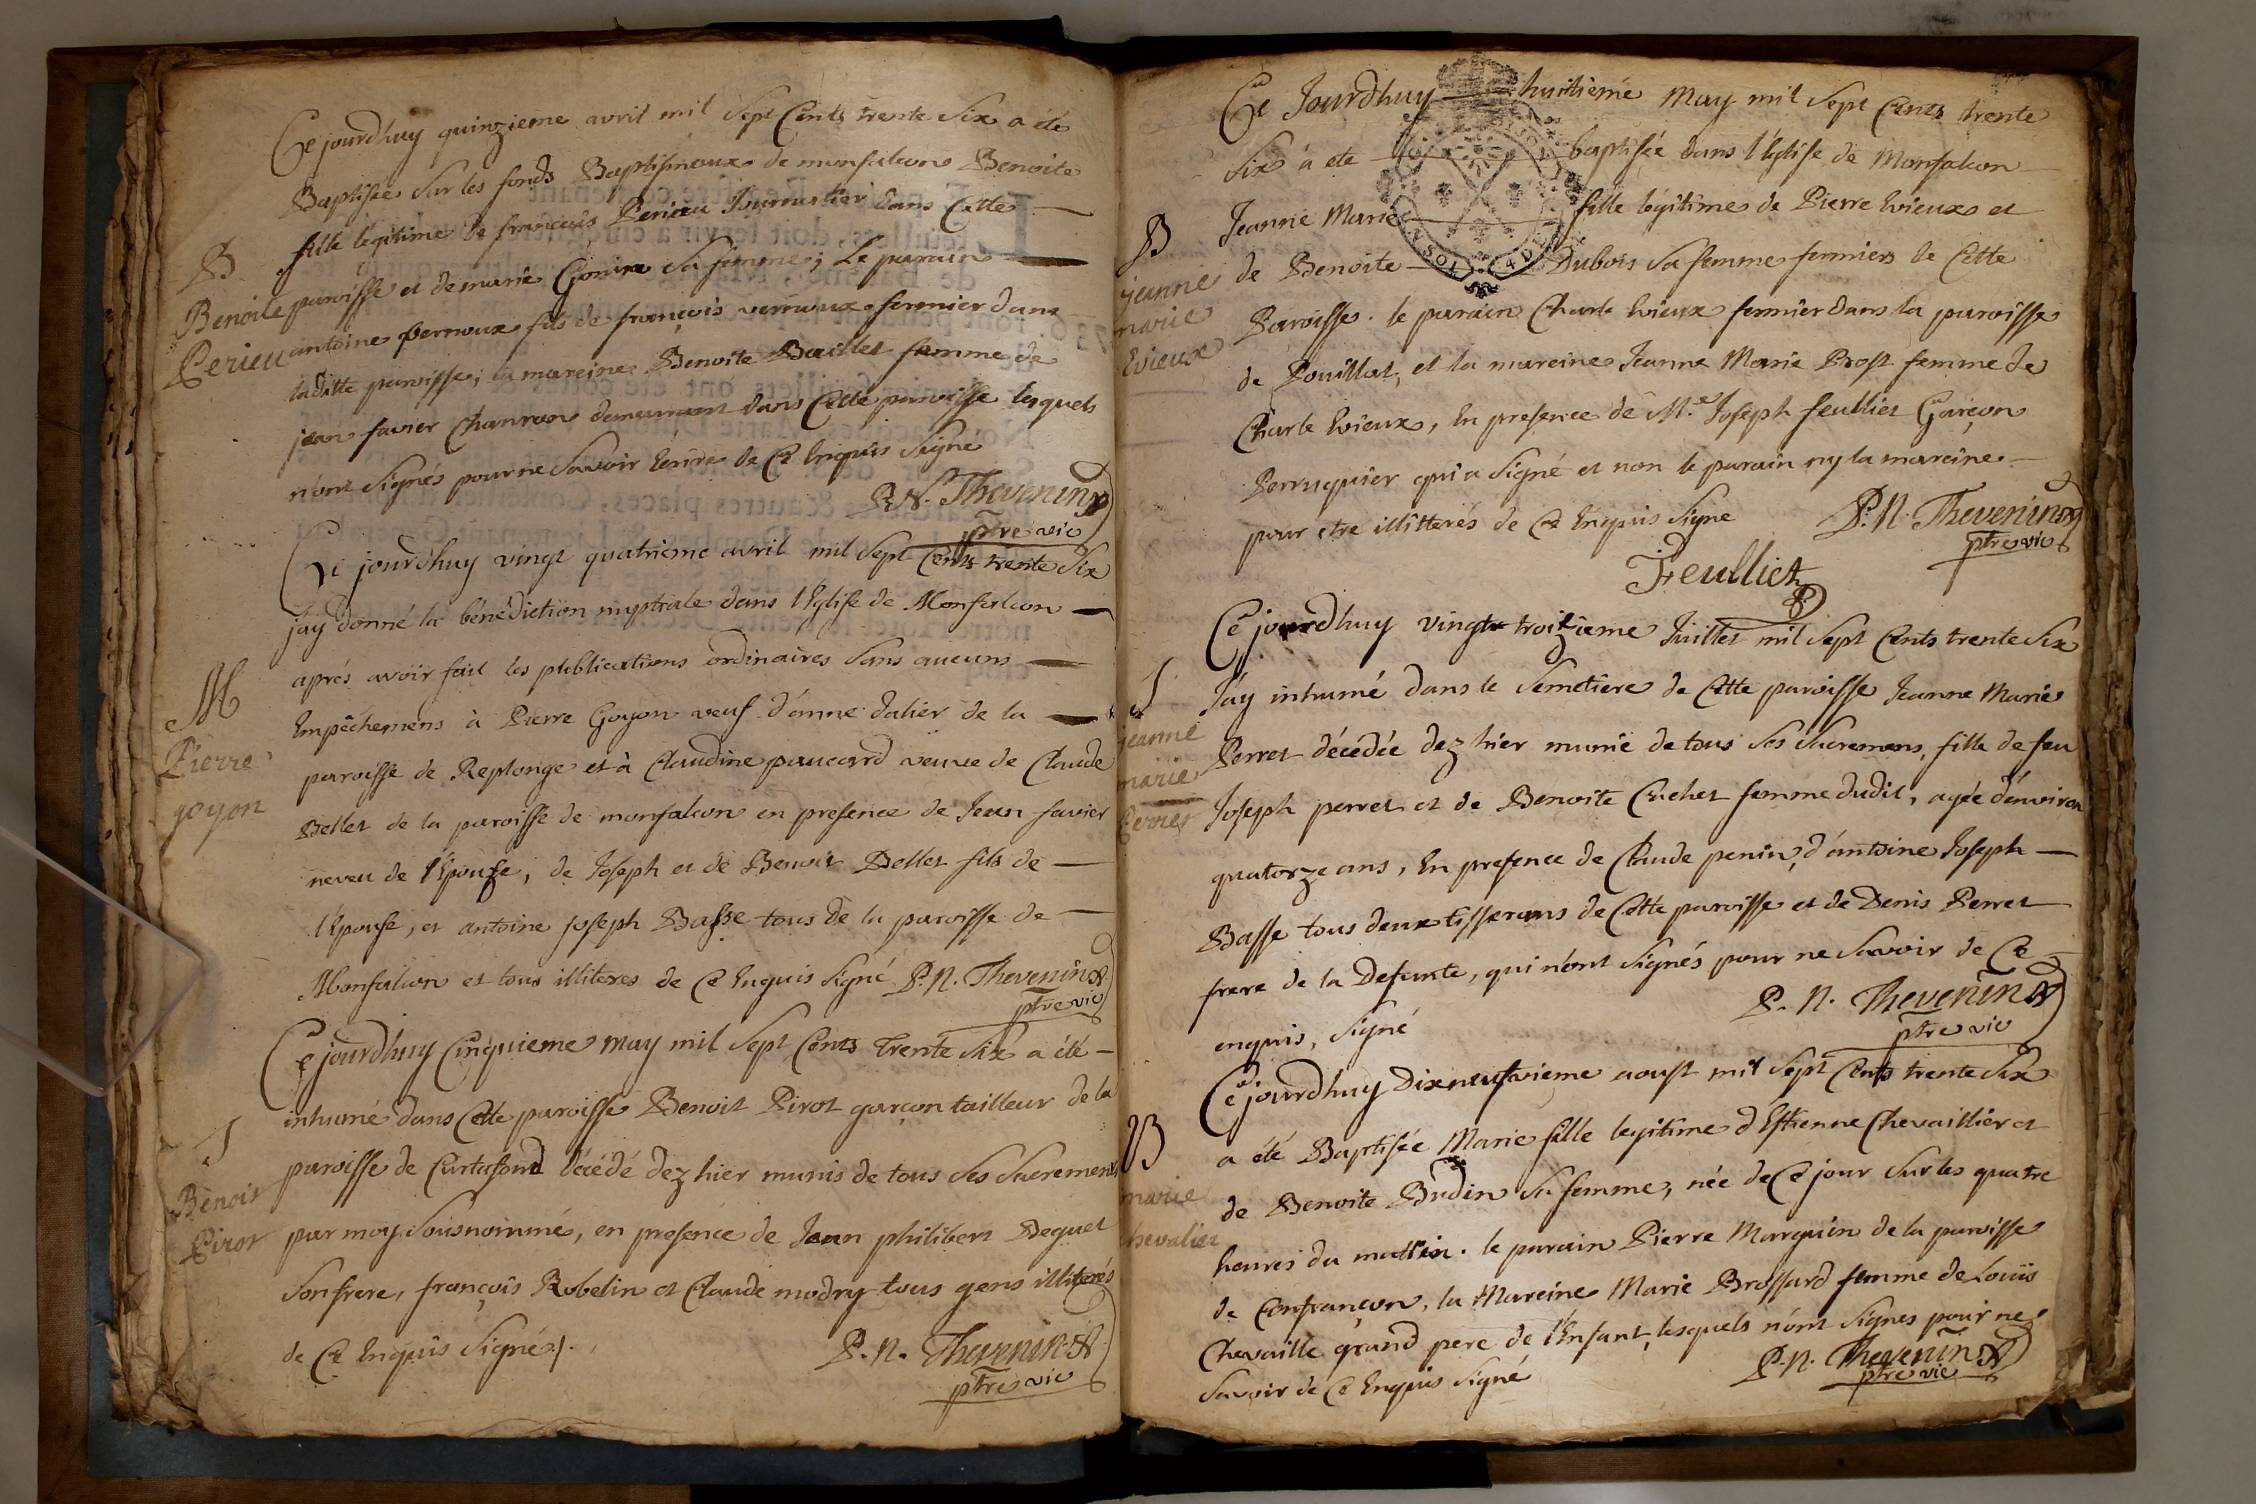 Ce jourdhuy quinzieme avril mil sept Cents trente six a été
Baptisée sur les fonds Baptismaux de monfalcon Benoite
fille légitime de françois Perieu Journalier dans Cette
B
Benoite
Perieu
paroisse et de marie Gonire sa femme; Le parain
antoine verroux fils de françois verroux fermier dans
laditte paroisse; la mareine Benoite Baillet femme de
jean favier Chanron demeurant dans Cette paroisse lesquels
n'ont signés pour ne savoir Ecrire de Ce Enquis Signe
P. N. Thevenin
ptre vic
Ce jourdhuy vingt quatrieme avril mil sept Cents trente six
jay donné la bénédiction nuptiale dans l'Eglise de Monfalcon
aprés avoir fait les publications ordinaires sans aucuns
M
Pierre
goyon
Empêchemens à Pierre Goyon veuf d'anne dalier de la
paroisse de Replonge et à Claudine paucard veuve de Claude
Bellet de la paroisse de monfalcon en presence de Jean favier
neveu de l'Epouse, de Joseph et de Benoit Bellet fils de
l'Epouse, et antoine joseph Basse tous de la paroisse de
Monfalcon et tous illiteres de Ce Enquis signé P. N. Thevenin
ptre vic
Ce jourdhuy Cinquieme may mil sept Cents trente six a été
inhumé dans Cette paroisse Benoit Pirot garçon tailleur de la
J
Benoit
Pirot
paroisse de Curtafond décédé dez hier munis de tous ses sacremens
par moy sousnommé, en presence de Jean philibert Deguet
son frere, françois Robelin et Claude modry tous gens illiterés
de Ce Enquis Signé.
P. N. Thevenin
ptre vic
Ce Jourdhuy huitiéme May mil sept Cents trente
six a eté baptisée dans l'Eglise de Monfalcon
B
jeanne
marie
Evieux
Jeanne Marie fille légitime de Pierre Evieux et
de Benoite Dubois sa femme fermiers de Cette
Paroisse. le parain Charle Evieux fermier dans la paroisse
de Pouillat, et la mareine Jeanne Marie Brost femme de
Charle Evieux, En presence de M.e Joseph feulliet Garçon
Perruquier qui a signé et non le parain ny la mareine
pour etre illitterés de Ce Enquis Signe
P. N. Thevenin
ptre vic
Feulliet
Ce jourdhuy vingt troizieme Juillet mil sept Cents trente six
J
jeanne
marie
Perret
J'ay inhumé dans le semetiere de Cette paroisse Jeanne Marie
Perret décedée dez hier munie de tous ses sacremens, fille de feu
Joseph perret et de Benoite Cuchet femme dudit, agée d'environ
quatorze ans, En presence de Claude penin, d'antoine Joseph
Basse tous deux tisserans de Cette paroisse et de Denis Perret
frere de la Defunte, qui n'ont signés pour ne savoir de Ce
enquis, signé
P. N. Thevenin
ptre vic
Ce jourdhuy Dixneufvieme aoust mil sept Cents trente six
B
marie
chevalier
a été Baptisée Marie fille legitime d'Estienne Chevaillier et
de Benoite Budin sa femme, née de Ce jour sur les quatre
heures du mattin. le parain Pierre Marquin de la paroisse
de Confrançon, la Mareine Marie Brossard femme de Loüis
Chevaille grand pere de l'Enfant, lesquels n'ont signés pour ne
savoir de Ce Enquis Signé
P. N. Thevenin
ptre vic